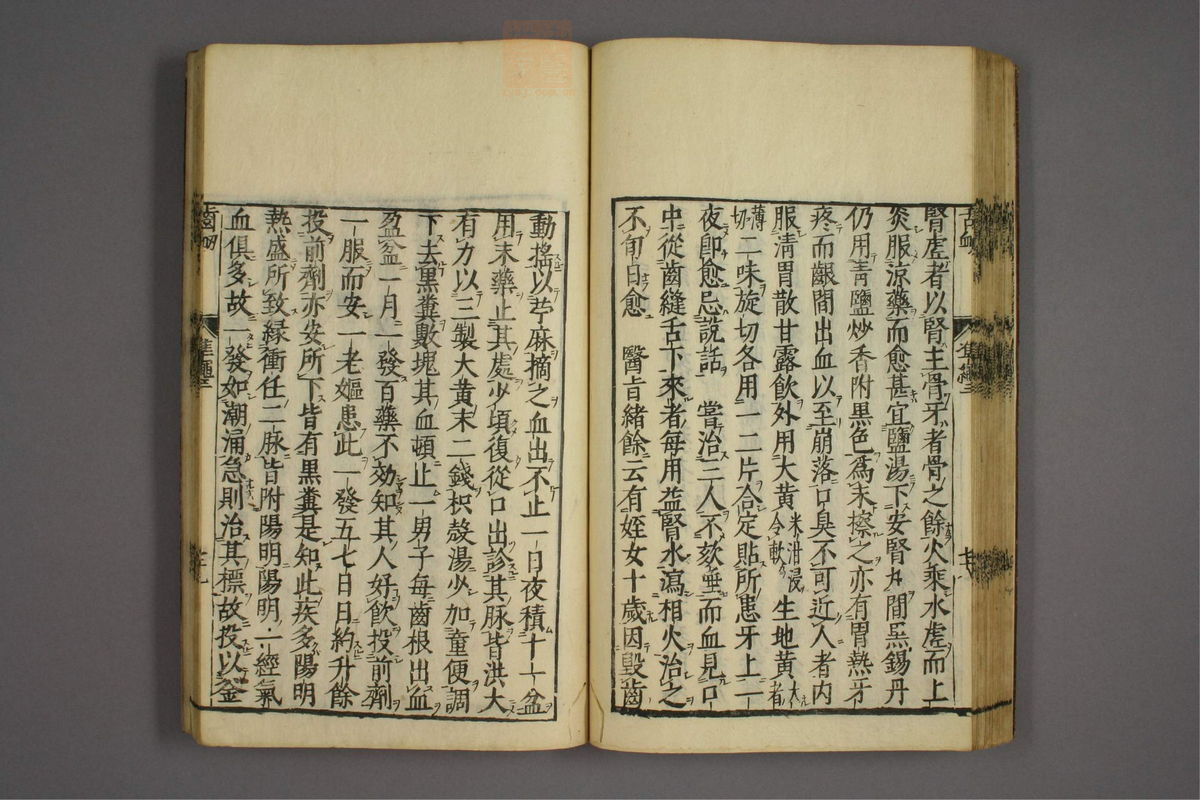 腎虛者以腎主骨牙者骨之餘火乘水虛而上
炎服凉藥而愈甚宜鹽湯下安腎丸間黑錫丹
仍用青鹽炒香附黑色為末擦之亦有胃熱牙
疼而齦間出血以至崩落口臭不可近人者內
服淸胃散甘露飲外用大黃米泔浸令軟生地黃大者
薄切二味旋切各用一二片合定貼所患牙上一
夜即愈忌說話　當治三人不欬唾而血見口
中從齒縫舌下來者每用益腎水瀉相火治之
不旬日愈　醫旨緒餘云有姪女十歲因毀齒
動搖以苧麻摘之血出不止一日夜積十一盆
用末藥止其處少頃復從口出診其脉皆洪大
有力以三製大黃末二錢枳殼湯少加童便調
下去黑糞數塊其血頓止一男子每齒根出血
盈盆一月一發百藥不効知其人好飲投前劑
一服而安一老嫗患此一發五七日日約升餘
投前劑亦安所下皆有黑糞是知此疾多陽明
熱盛所致緣衝任二脉皆附陽明陽明一經氣
血俱多故一發如潮涌急則治其標故投以釜